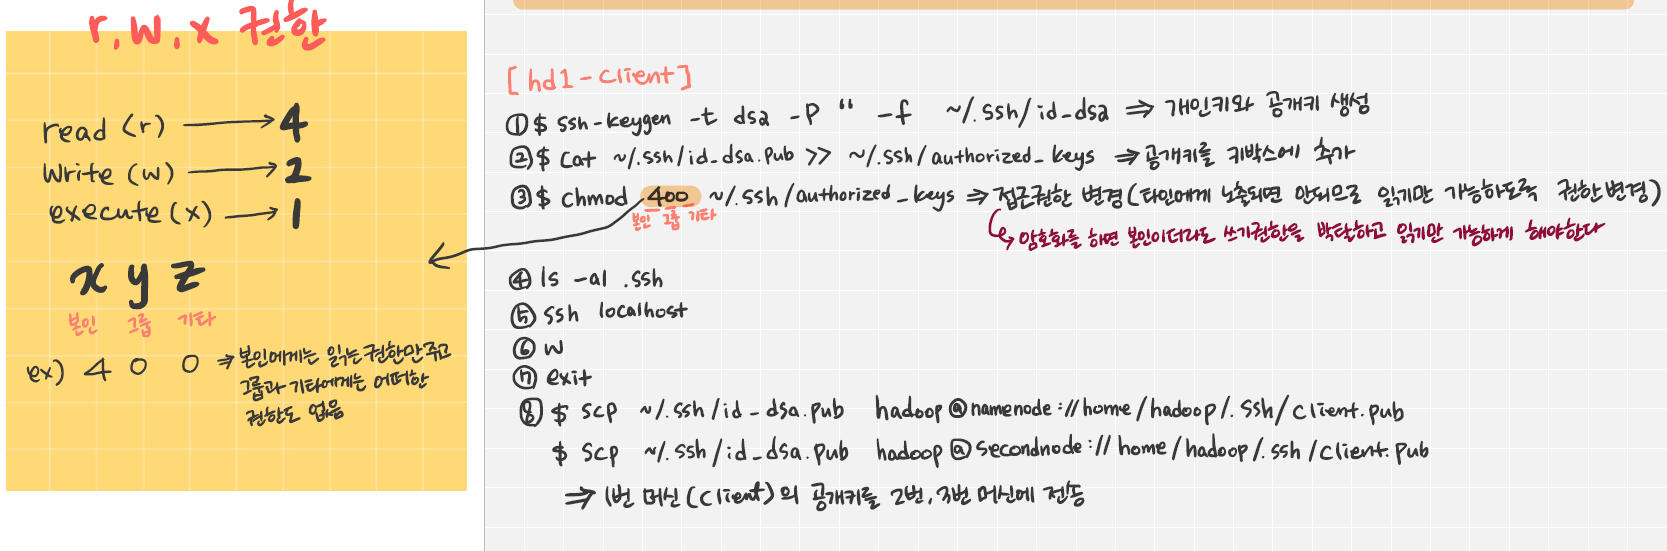 r, w, x 권한
read (r) → 4
write (w) → 2
execute (x) → 1
x y z
본인 그룹 기타
ex) 4 0 0 ⇒ 본인에게는 읽는 권한만 주고
그룹과 기타에게는 어떠한
권한도 없음
[hd1-client]
① $ ssh-keygen -t dsa -P '' -f ~/.ssh/id_dsa ⇒ 개인키와 공개키 생성
② $ cat ~/.ssh/id_dsa.pub >> ~/.ssh/authorized_keys ⇒ 공개키를 키박스에 추가
③ $ chmod 400 ~/.ssh/authorized_keys ⇒ 접근권한 변경(타인에게 노출되면 안되므로 읽기만 가능하도록 권한변경)
본인 그룹 기타
↳ 암호화를 하면 본인이더라도 쓰기권한을 박탈하고 읽기만 가능하게 해야한다
④ ls -al .ssh
⑤ ssh localhost
⑥ w
⑦ exit
⑧ $ scp ~/.ssh/id_dsa.pub hadoop@namenode://home/hadoop/.ssh/client.pub
$ scp ~/.ssh/id_dsa.pub hadoop@secondnode://home/hadoop/.ssh/client.pub
⇒ 1번 머신(client)의 공개키를 2번, 3번 머신에 전송